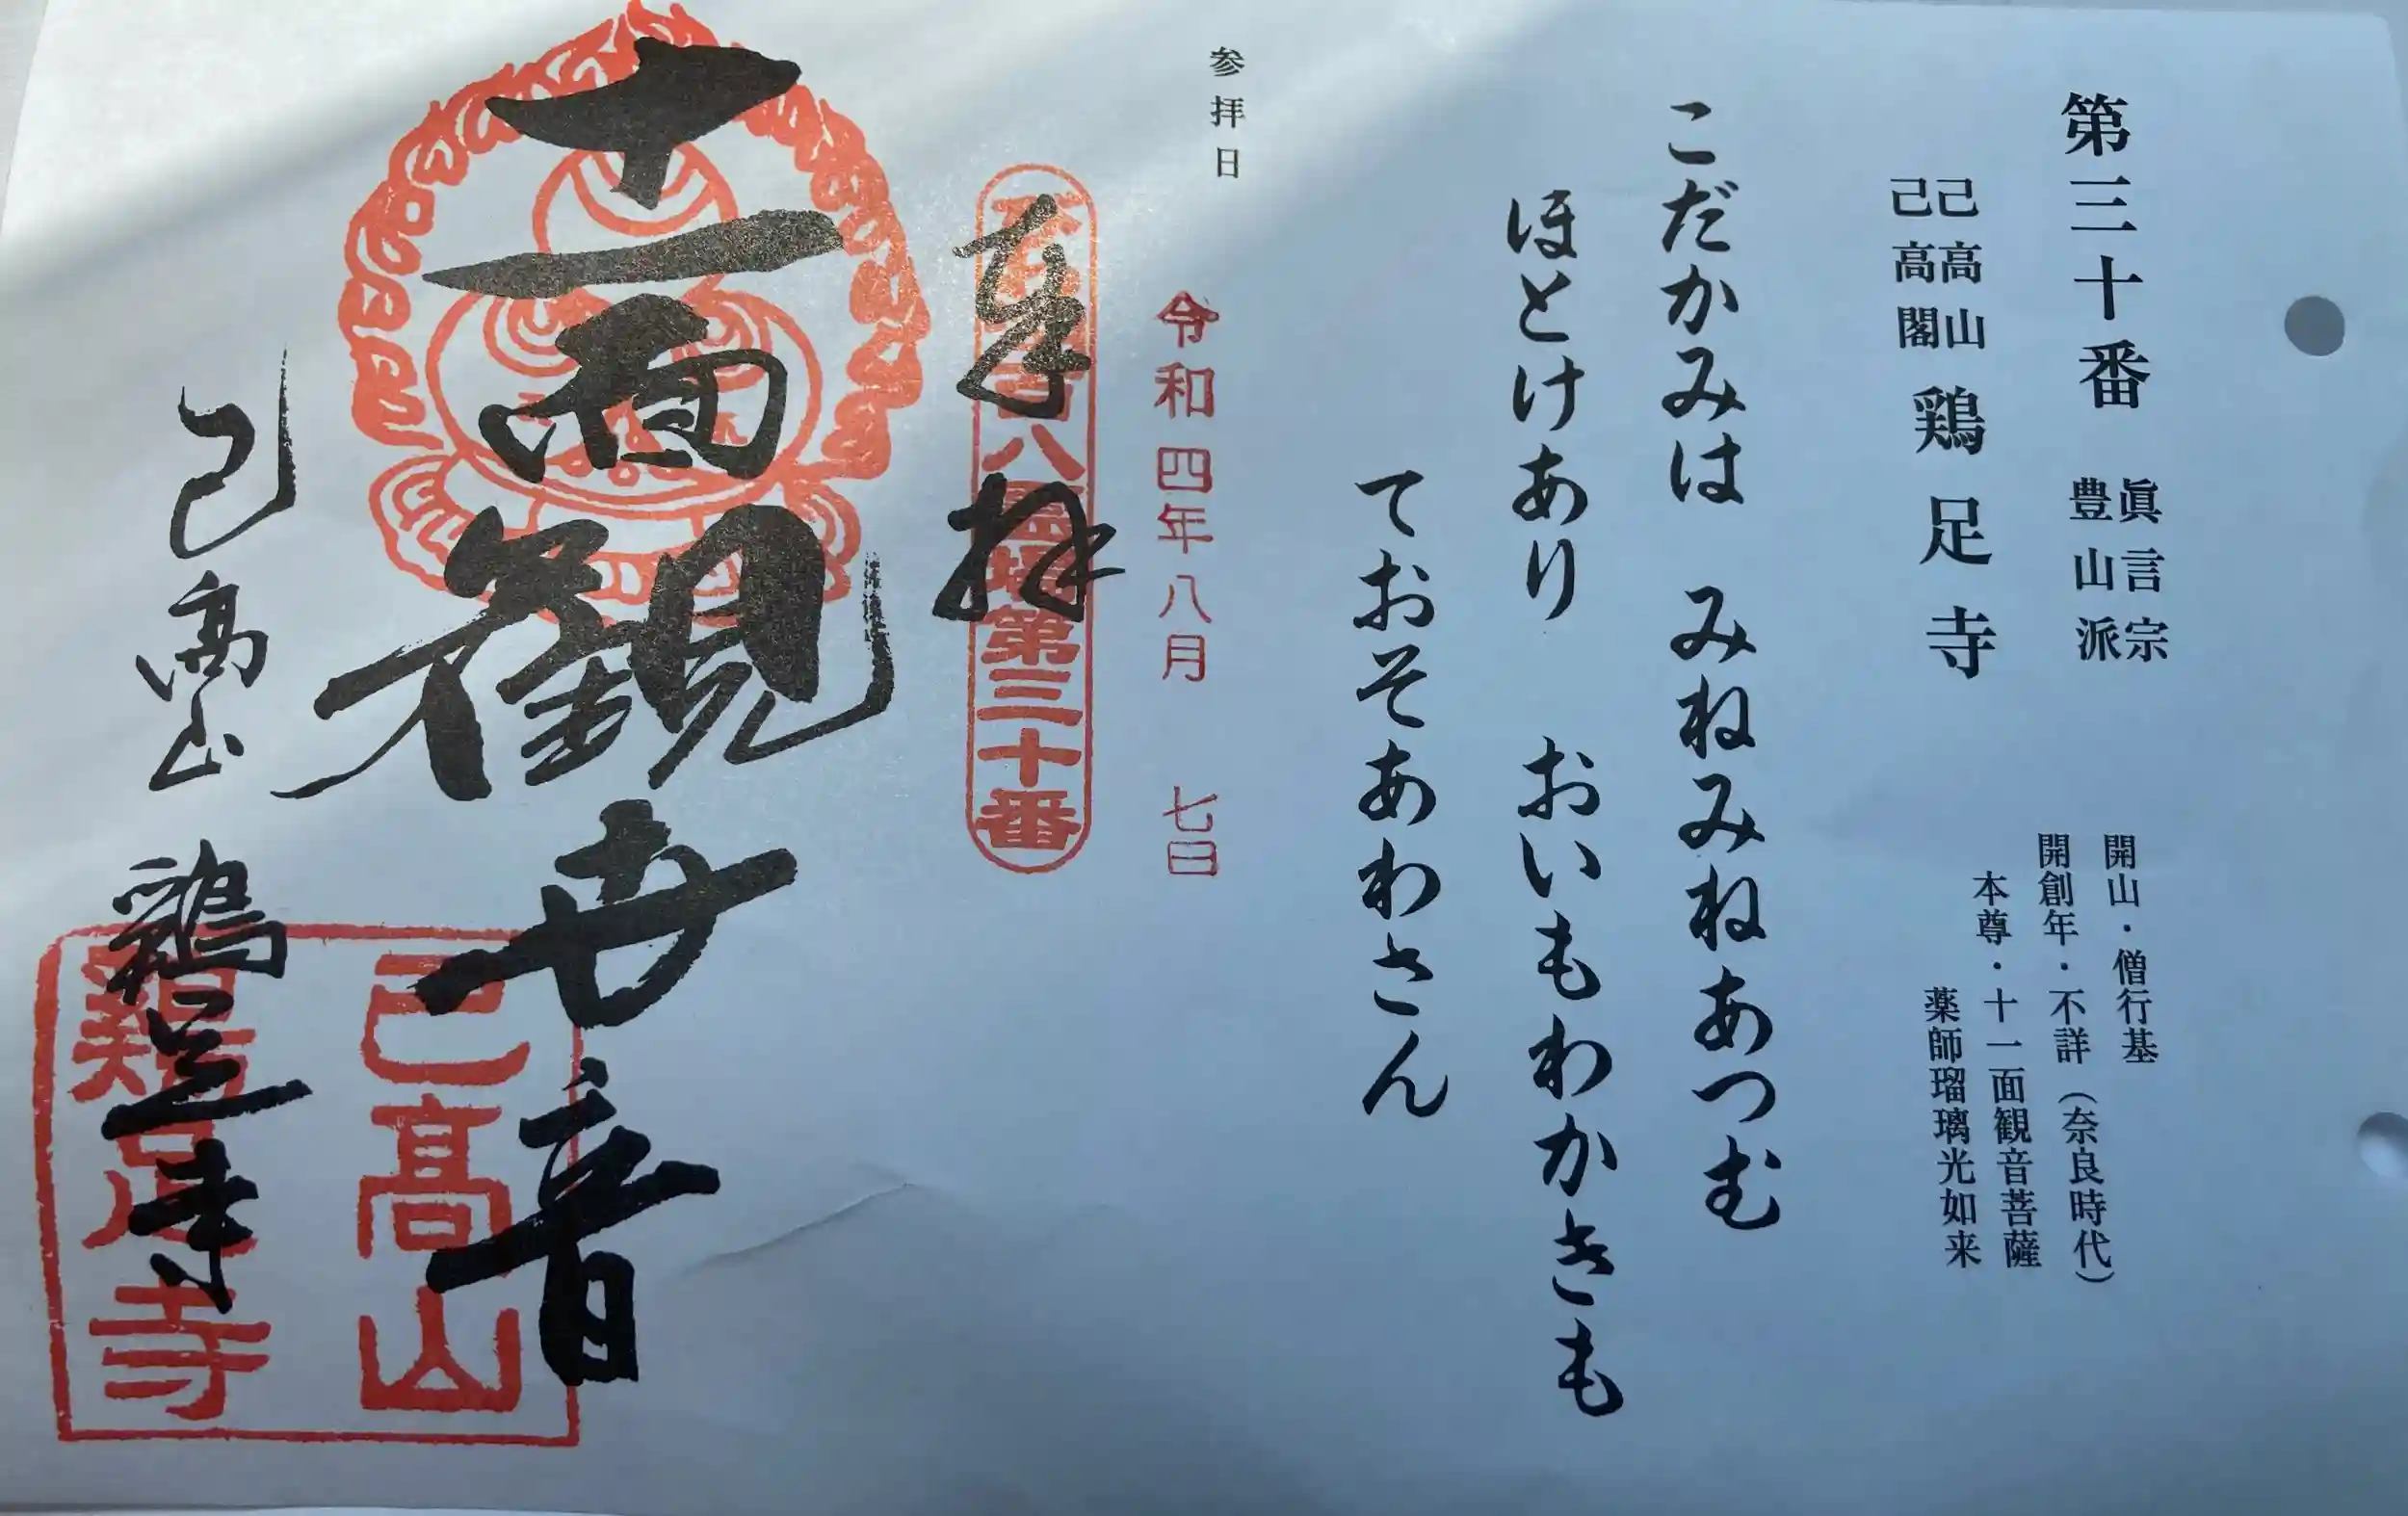 第三十番
眞言宗
豊山派
開山・僧行基
開創年・不詳（奈良時代）
本尊・十一面観音菩薩
薬師瑠璃光如来
己高山
己高閣
鶏足寺
こだかみは　みねみねあつむ
ほとけあり　おいもわかきも
ておそあわさん
参拝日
令和四年八月　七日
奉拝
八霊場第三十番
十一面観世音
己高山　鶏足寺
己高山
鶏足寺